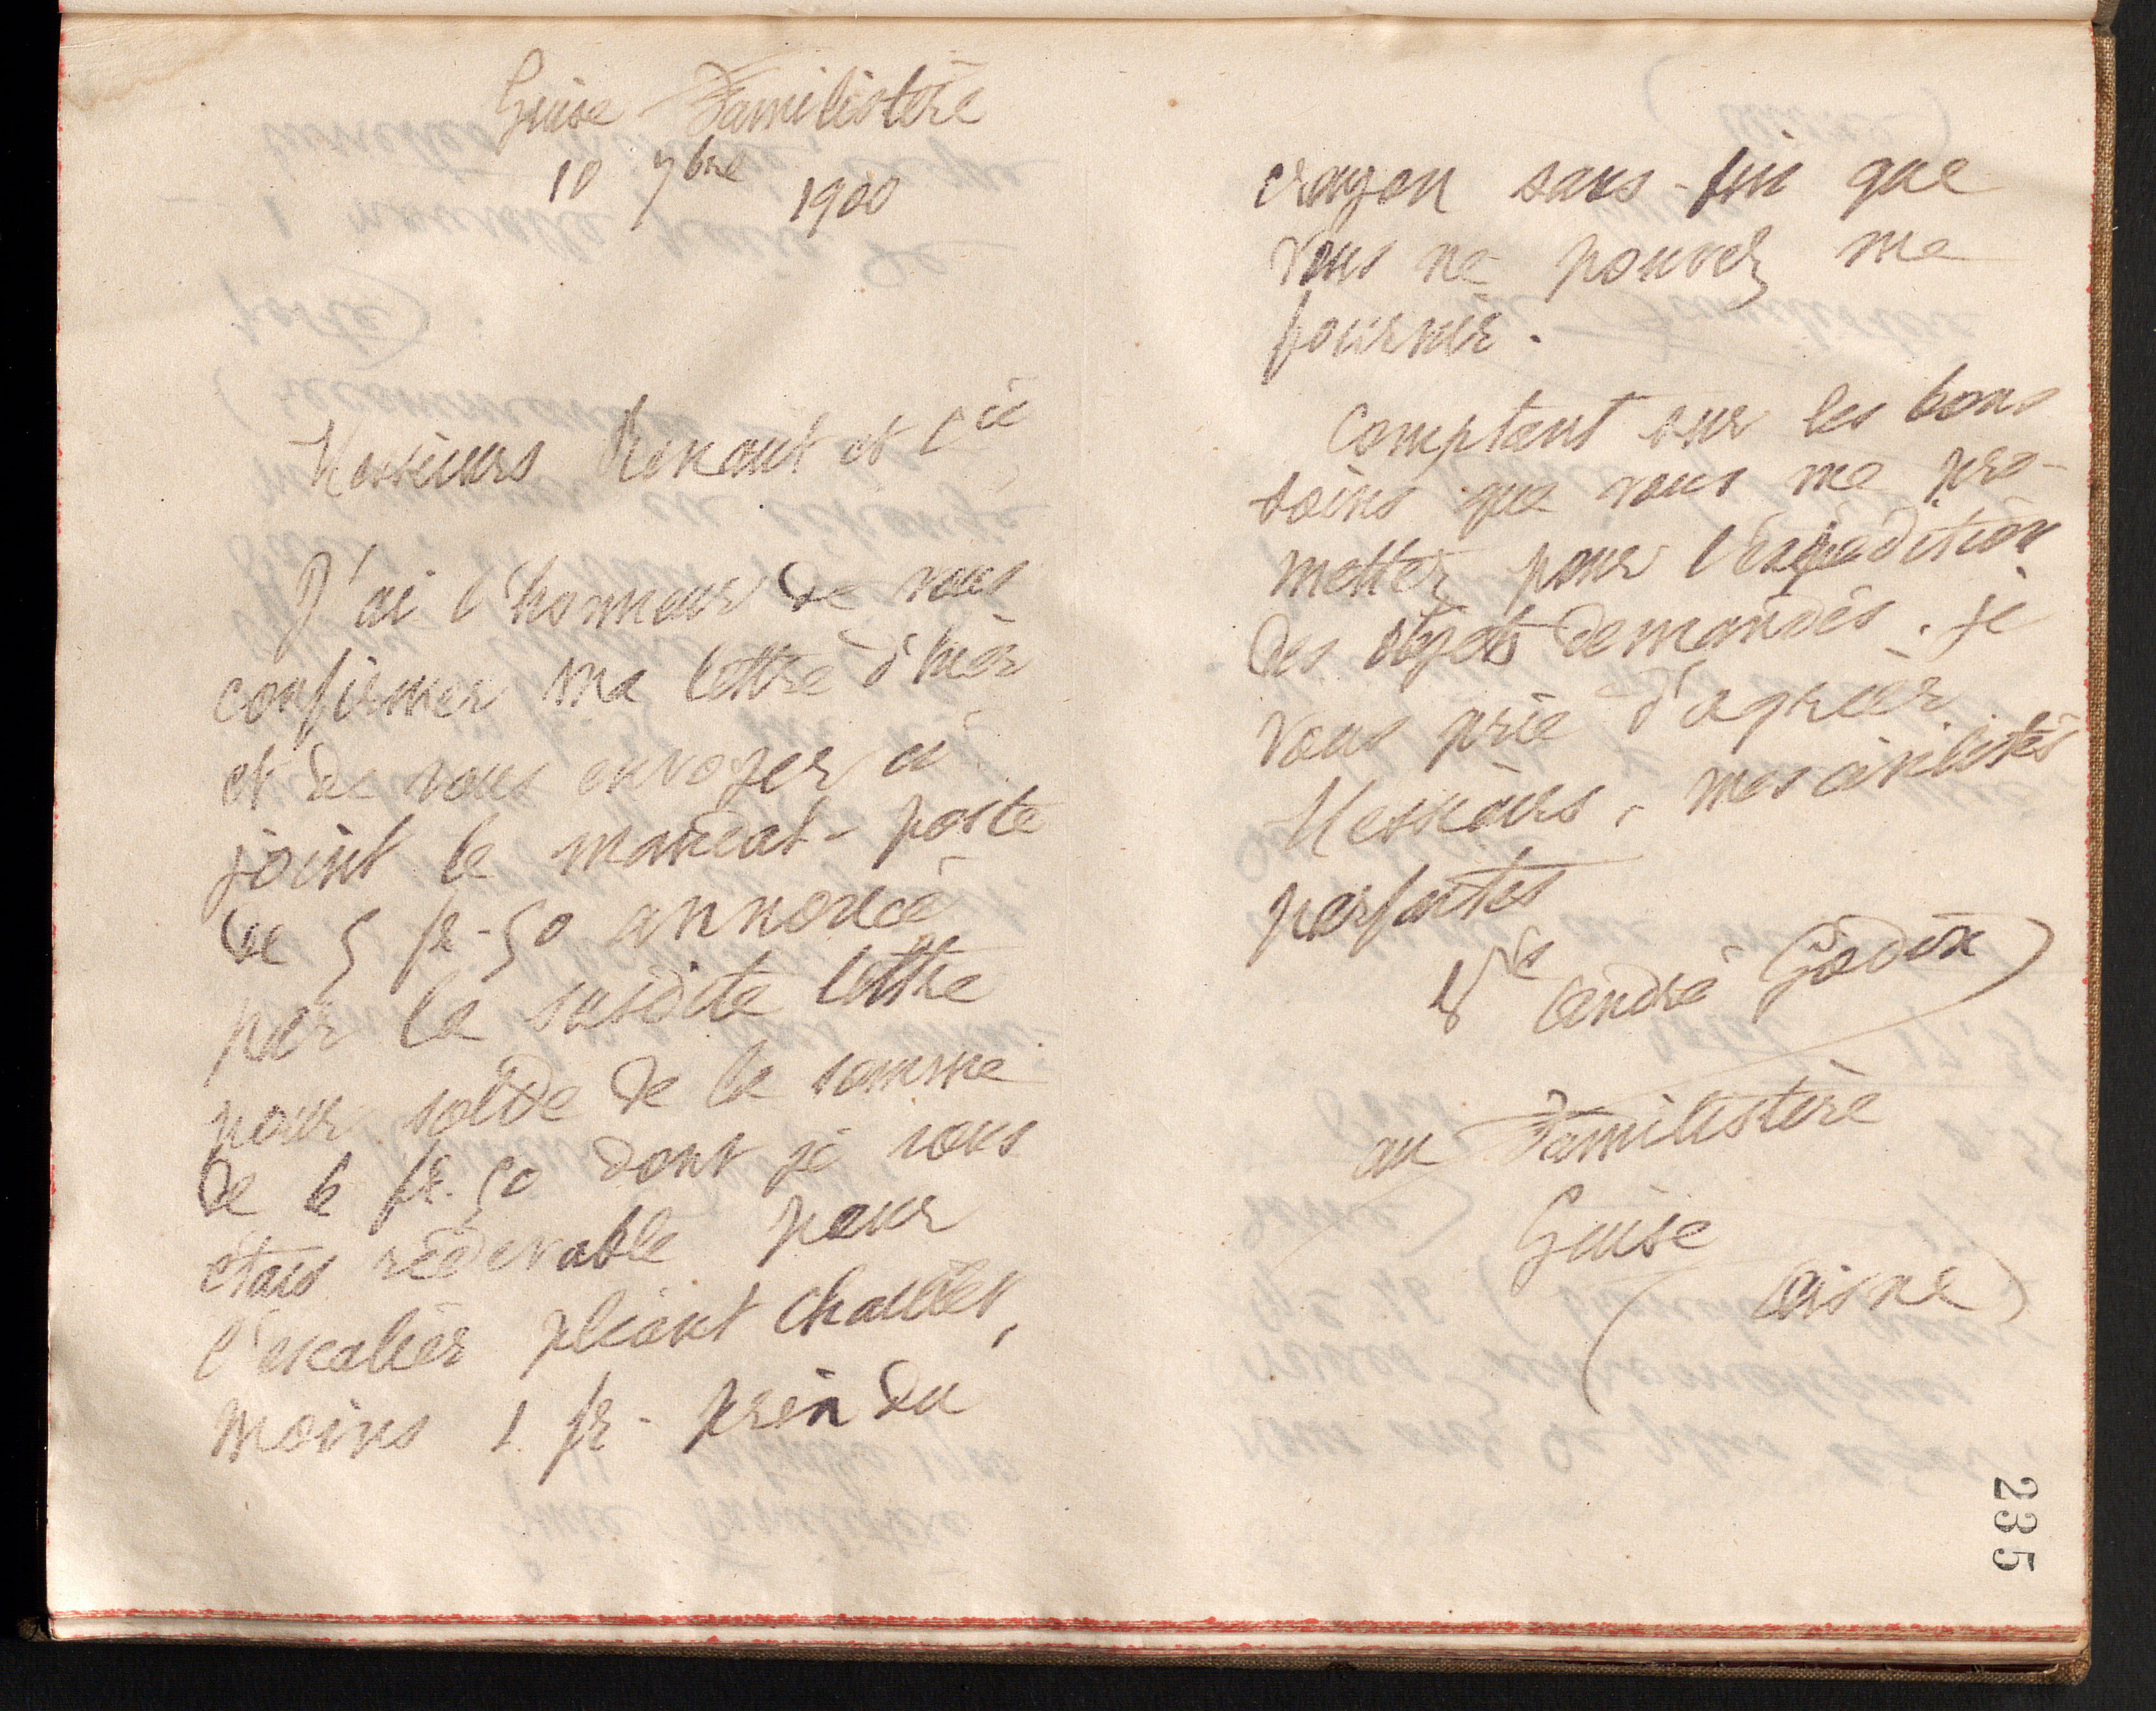 Guise Familistère
10 7bre 1900
Messieurs Renout et Cie
J'ai l'honneur de vous
confirmer ma lettre d'hier
et de vous envoyer ci
joint le mandat-poste
de 5 fr-50 annoncé
par la susdite lettre
pour solde de la somme
de 6 fr. 50 dont je vous
étais redevable pour
l'escalier pliant chaillet,
moins 1 fr- prix du
crayon sans-fin que
vous ne pouvez me
fournir.
Comptant sur les bons
soins que vous me pro-
mettez pour l'expédition
des objets demandés. je
vous prie d'agréer
Messieurs, mes civilités
parfaites
Vve André Godin
au Familistère
Guise
(Aisne)
235